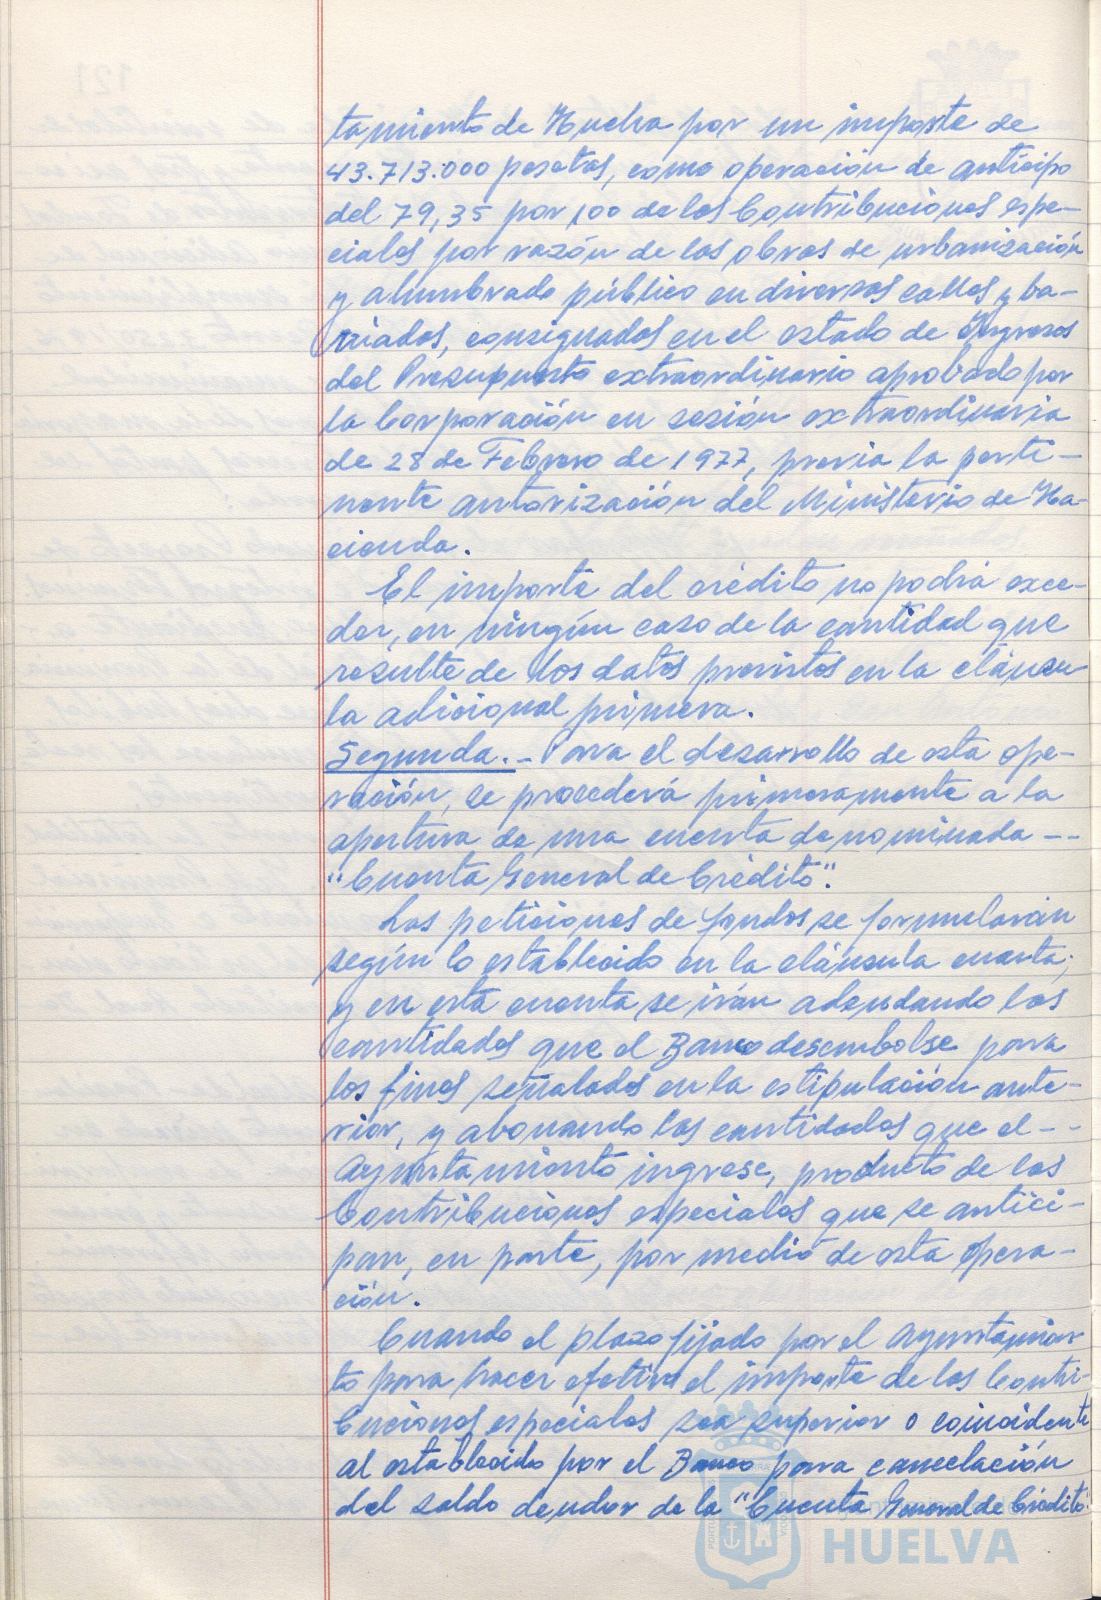 tamiento de Huelva por un importe de
43.713.000 pesetas, como operación de anticipo
del 79,35 por 100 de las Contribuciones espe-
ciales por razón de las obras de urbanización
y alumbrado público en diversas calles y ba-
rriadas, consignados en el estado de Ingresos
del Presupuesto extraordinario aprobado por
la Corporación en sesión extraordinaria
de 28 de Febrero de 1977, previa la perti-
nente autorización del Ministerio de Ha-
cienda.
El importe del crédito no podrá exce-
der, en ningún caso de la cantidad que
resulte de los datos previstos en la cláusu
la adicional primera.
Segunda.- Para el desarrollo de esta ope-
ración, se procederá primeramente a la
apertura de una cuenta denominada --
"Cuenta General de Crédito".
Las peticiones de fondos se formularán
según lo establecido en la cláusula cuarta,
y en esta cuenta se irán adeudando las
cantidades que el Banco desembolse para
los fines señalados en la estipulación ante-
rior, y abonando las cantidades que el --
Ayuntamiento ingrese, producto de las
Contribuciones especiales que se antici-
pan, en parte, por medio de esta opera-
ción.
Cuando el plazo fijado por el Ayuntamien
to para hacer efectivo el importe de las Contri-
buciones especiales sea superior o coincidente
al establecido por el Banco para cancelación
del saldo deudor de la "Cuenta General de Crédito"
HUELVA